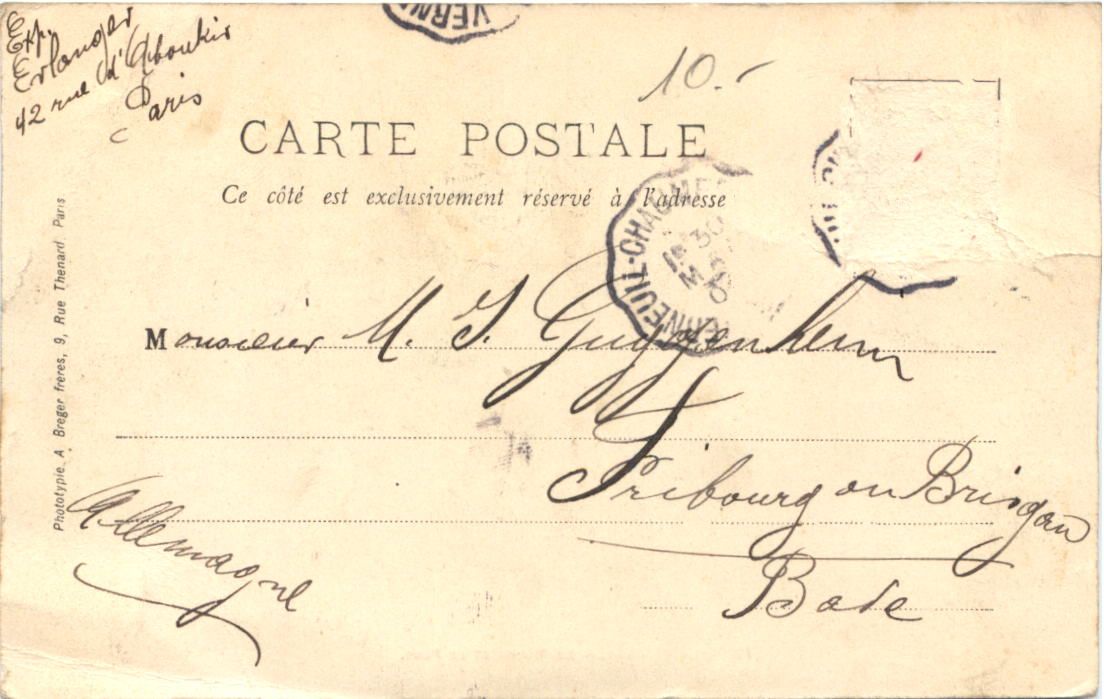 Exp.
Erlanger
42 rue d'Aboukir
Paris
VERN
10.-
CARTE POSTALE
Ce côté est exclusivement réservé à l'adresse
VERNEUIL-CHAUME
30
MA
0
Monsieur M. J. Guggenheim
Fribourg en Brisgau
Bade
Allemagne
Phototypie A Breger frères, 9, Rue Thenard Paris